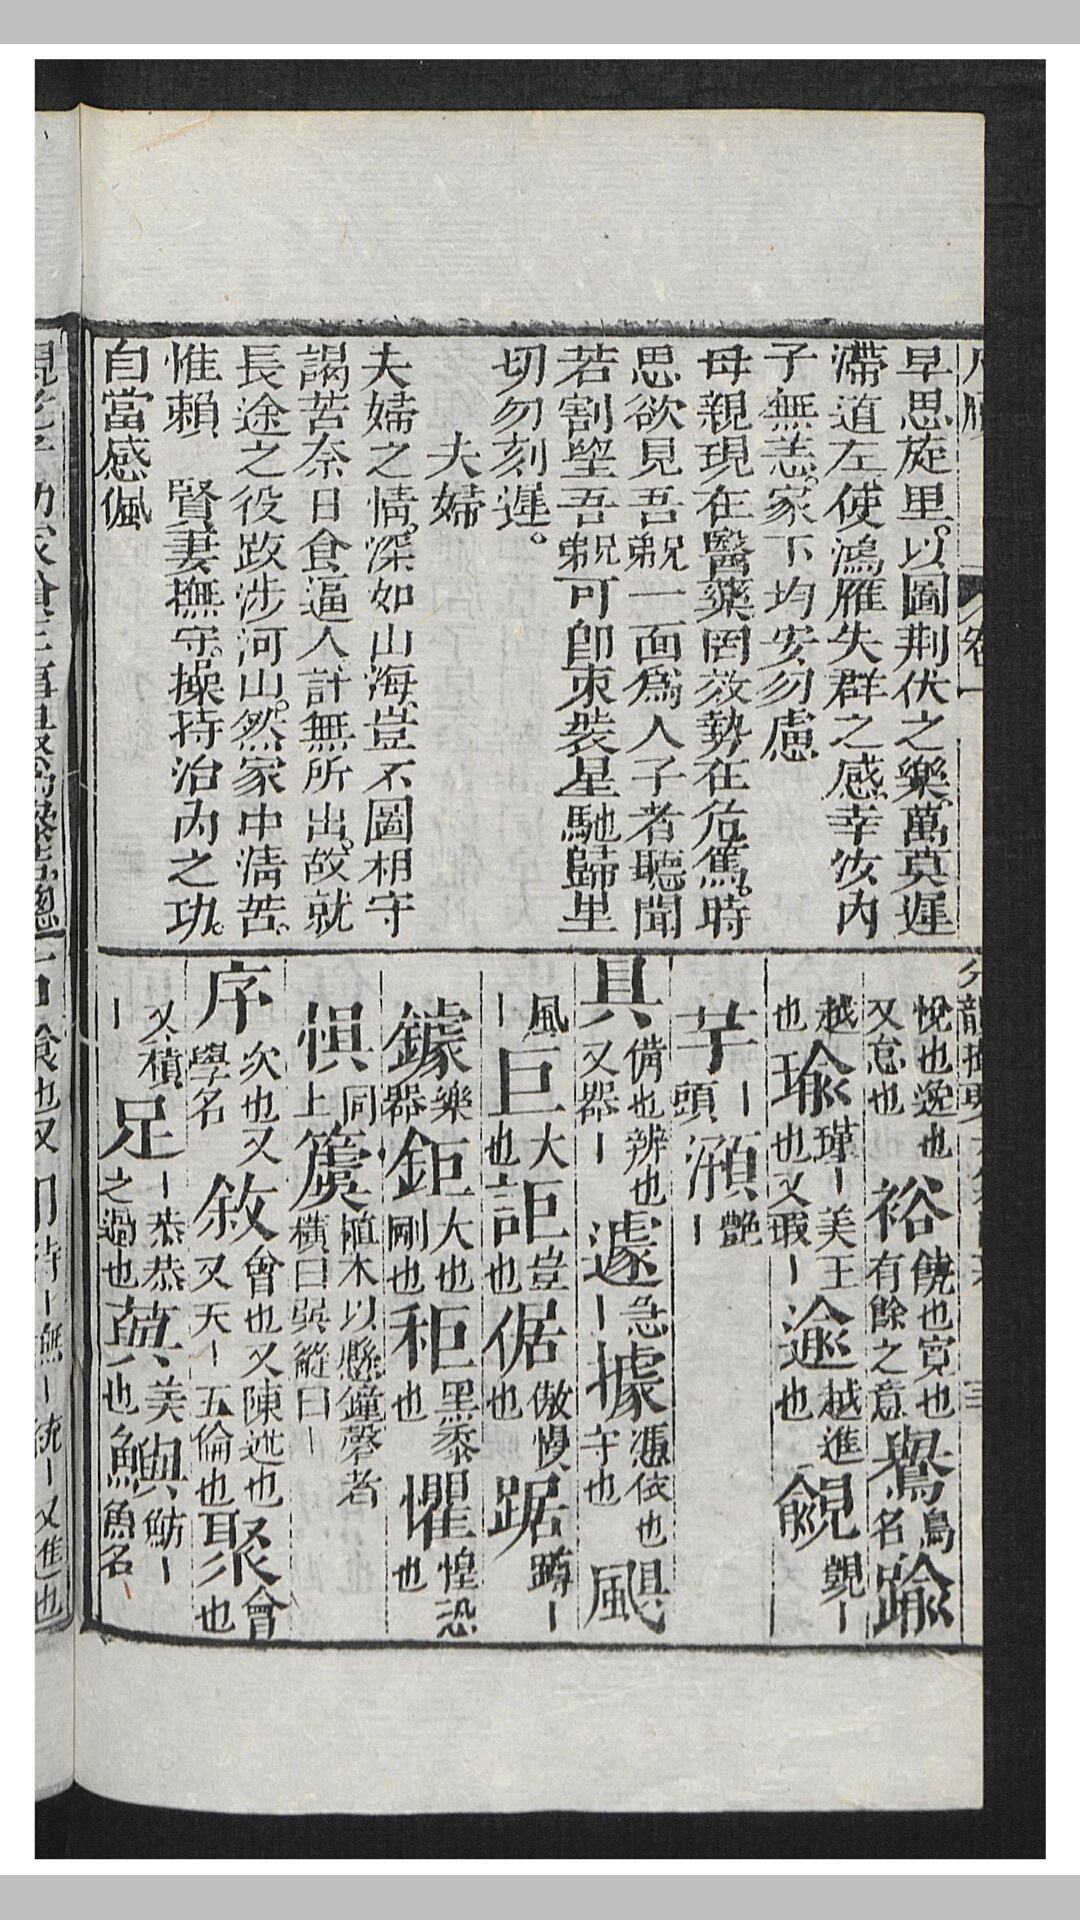 早思旋里。以圖荆伏之樂、萬莫遲
滯道左使鴻雁失群之感幸汝內
子無恙。家下均安勿慮
母親現在醫藥罔效勢在危篤。時
思欲見吾弟一面為人子者聽聞
若割望吾弟可即束裝星馳歸里
切勿刻遲。
夫婦
夫婦之情。深如山海豈不圖相守
謁苦奈日食逼人計無所出。故就
長途之役跋涉河山。然家中清苦。
惟賴 賢妻撫守。操持治內之功。
自當感佩
悅也逸也又怠也 裕 饒也寬也有餘之意 鸒 鳥名 踰
越也 瑜 瑾丨美玉也又瑕丨 逾 越進也 覦 覬丨
芋 丨頭 澦 艷丨
具 備也辨也又器丨 遽 急丨 據 憑依也守也 颶
颶風丨 巨 大也 詎 豈也 倨 傲慢也 踞 蹲丨
鐻 樂器 鉅 大也剛也 秬 黑黍也 懼 惶恐也
惧 同上 簴 植木以懸鐘磬者橫曰 縱曰丨
序 次也又學名 敘 曾也又陳述也又天丨五倫也 聚 會也
又積丨 足 丨恭恭之過也 藇 美也 鱮 魴丨魚名